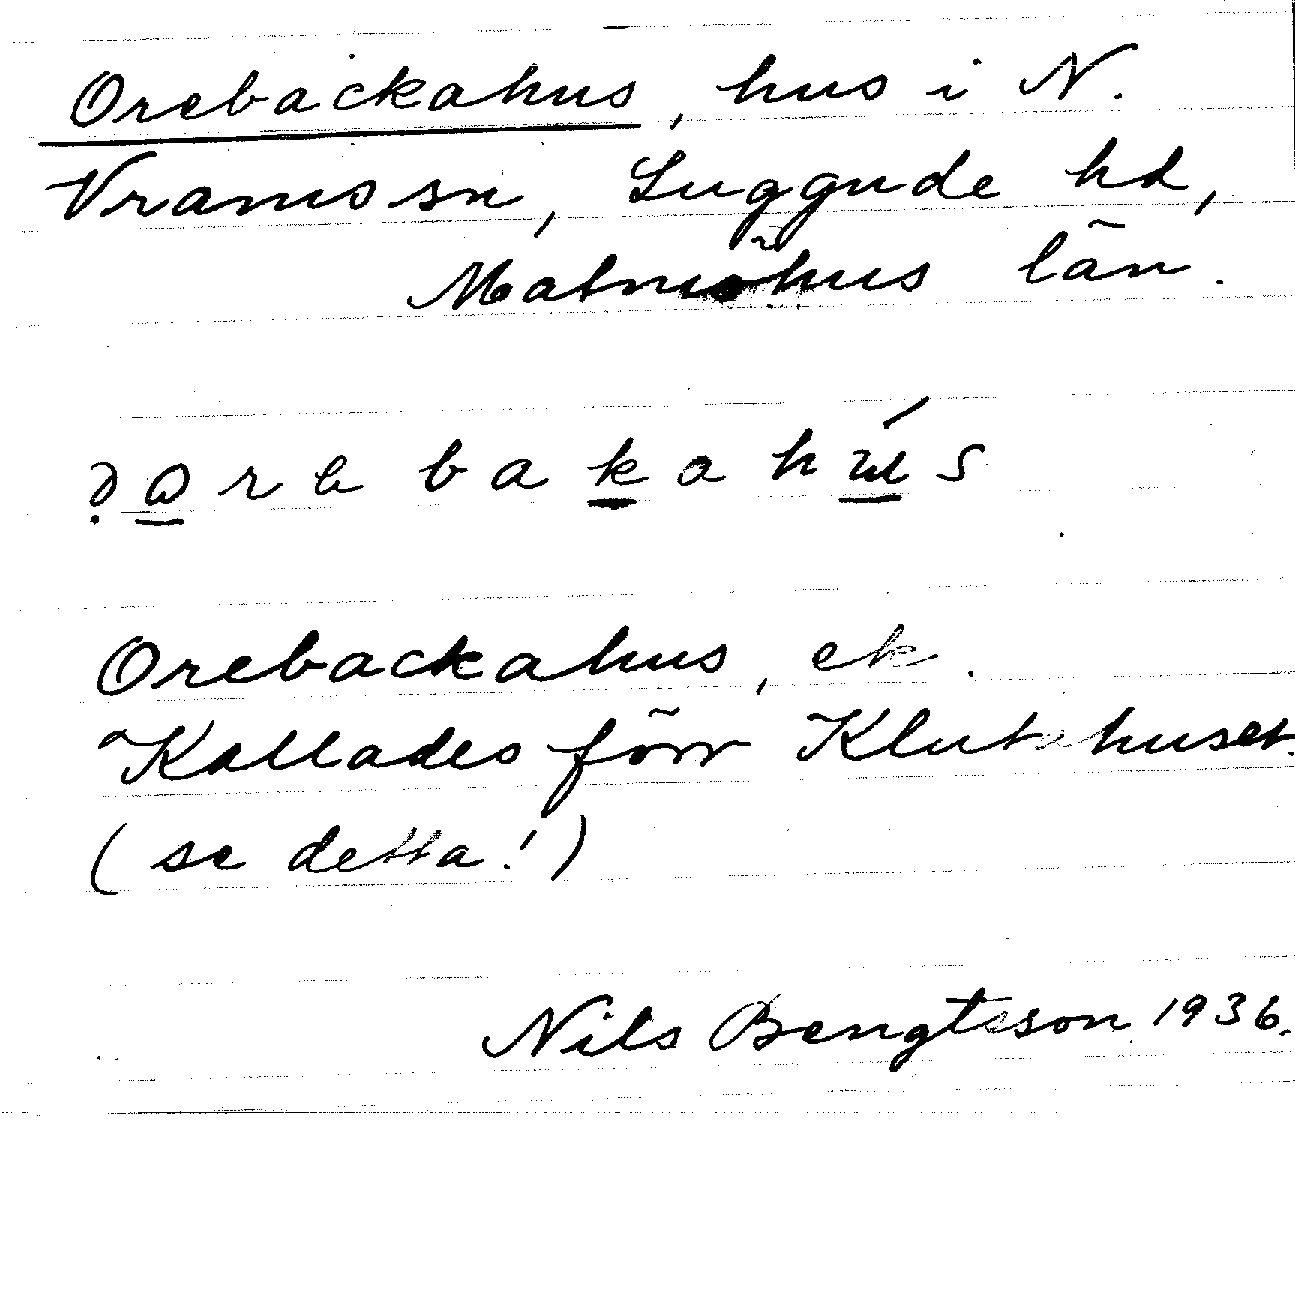 Orebackahus, hus i N.
Vrams sn, Luggude hd,
Malmöhus län.
Orebackahus, ek.
Kallades förr Klutahuset.
(se detta!)
Nils Bengtsson 1936.